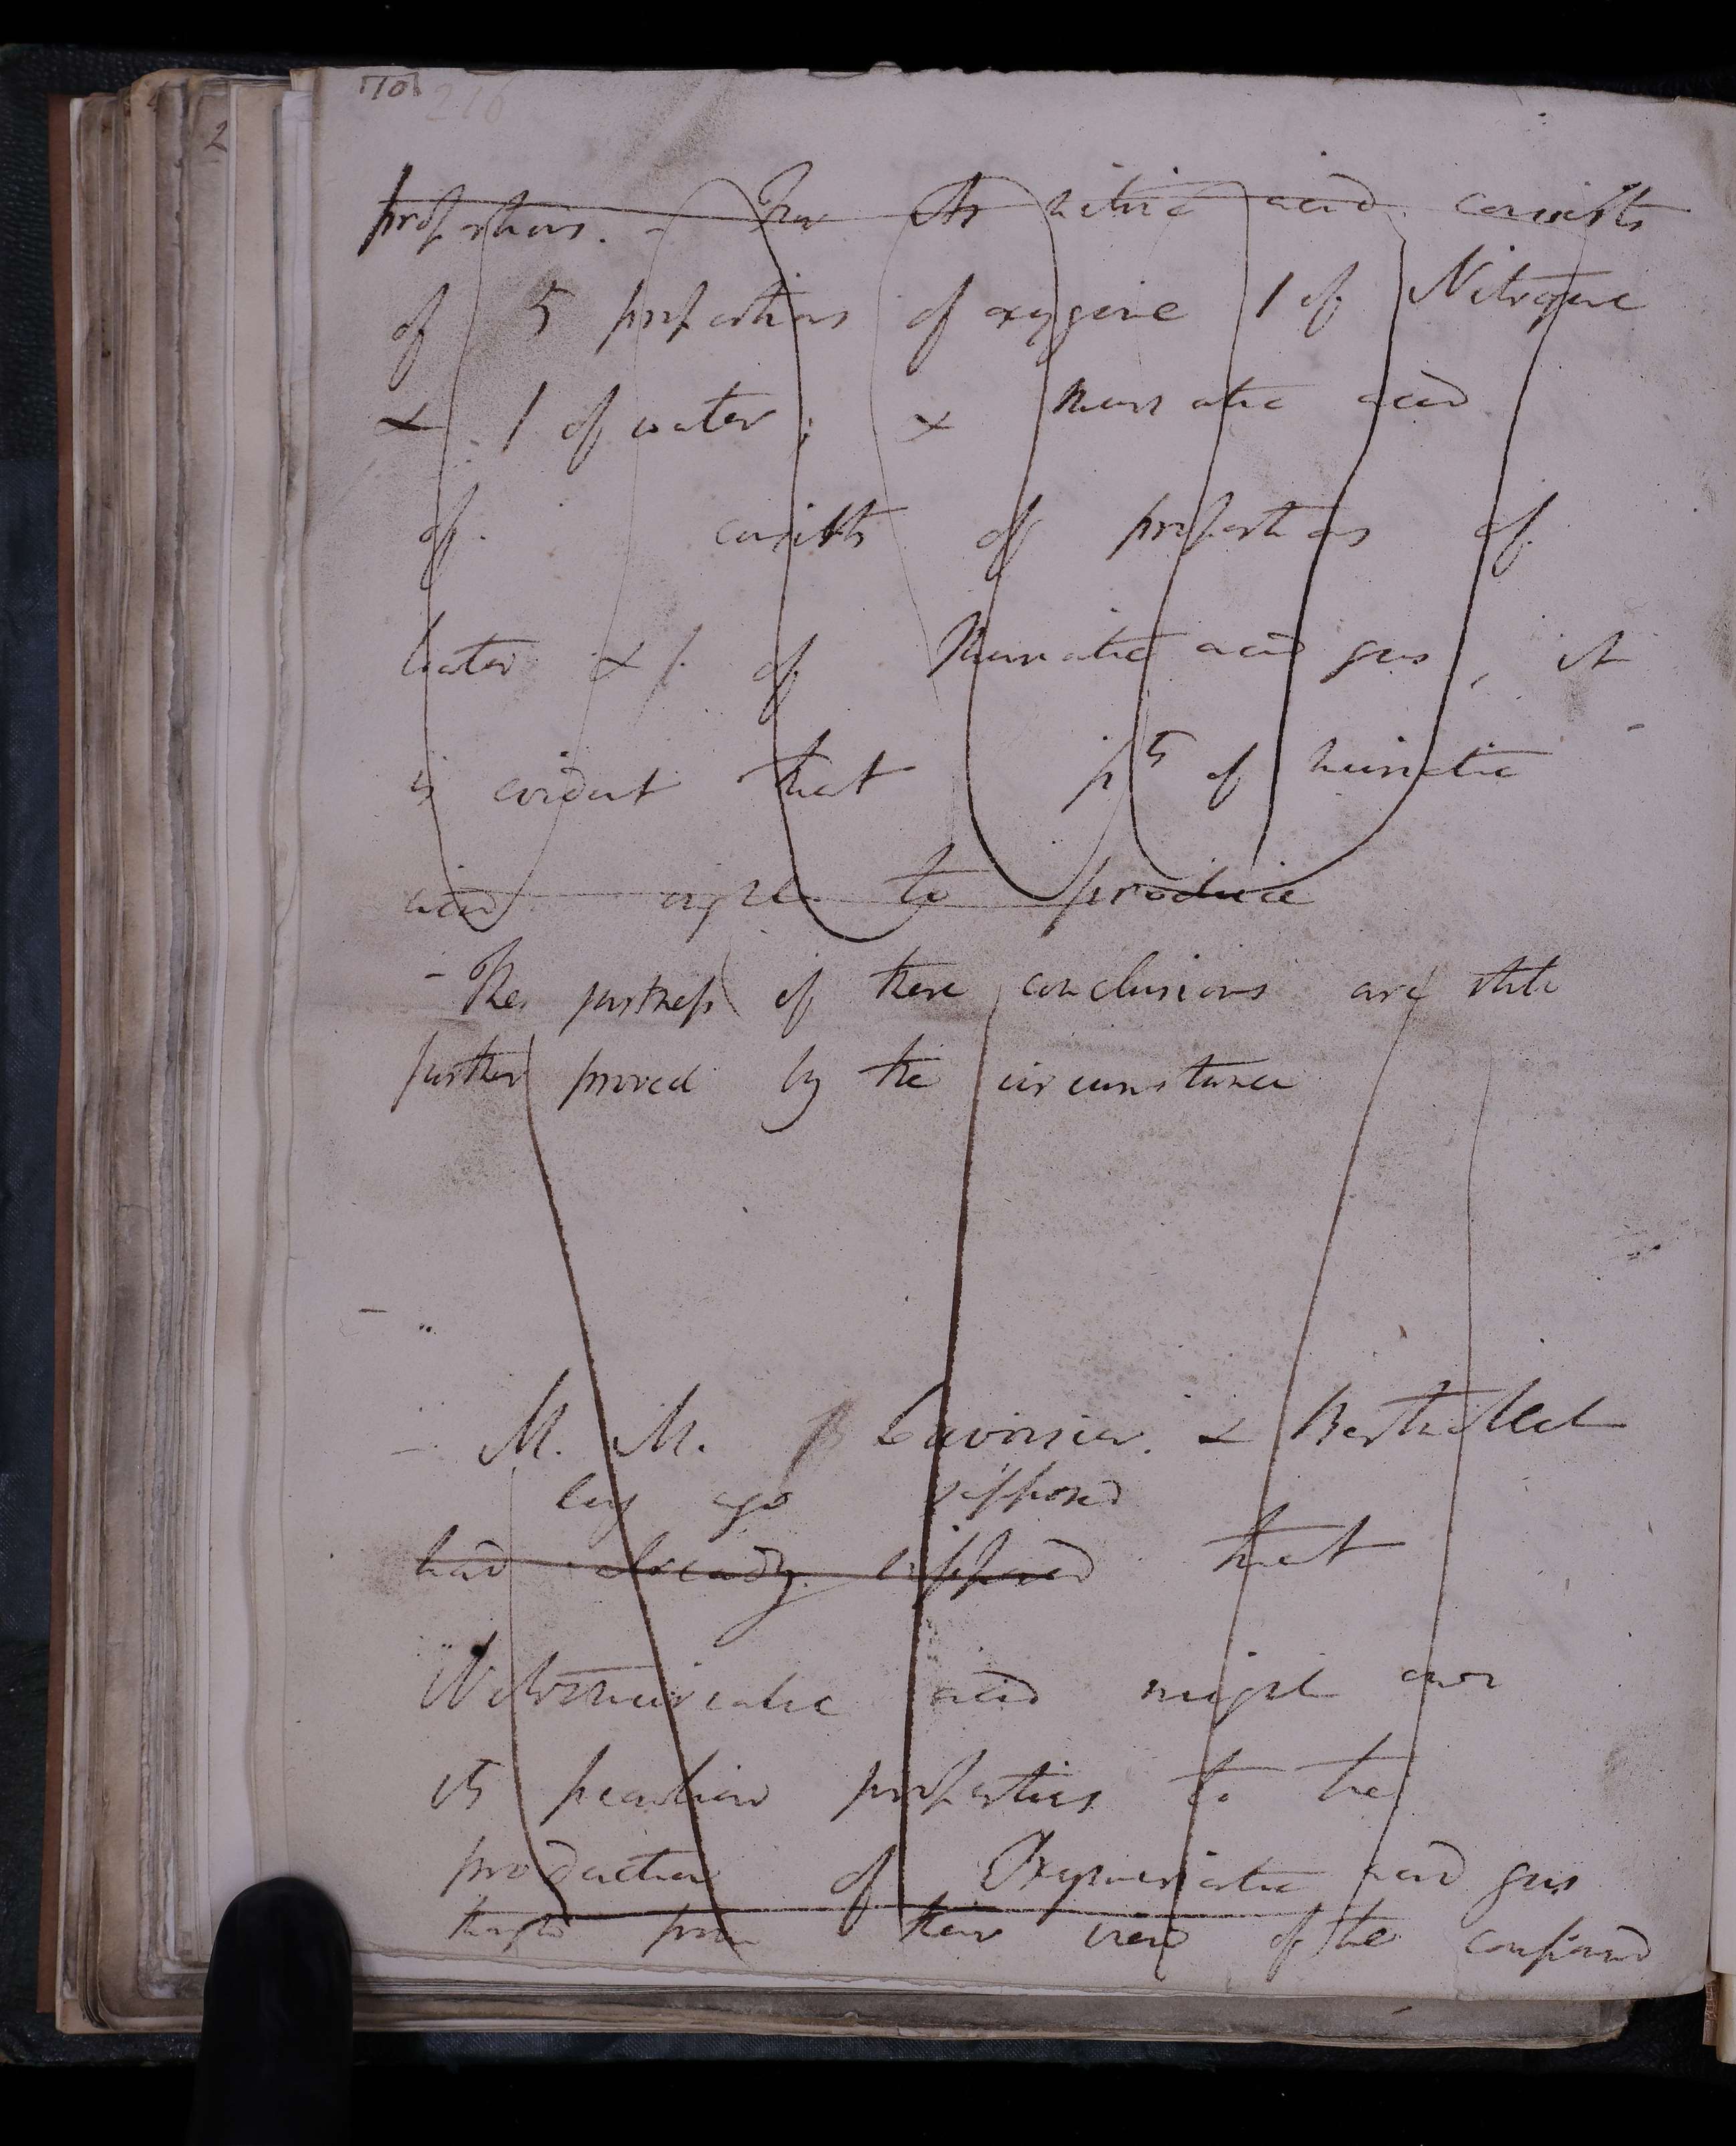 170 216
proportions. - For As nitric acid consists
of 5 proportions of oxygene 1 of Nitrogene
& 1 of water; & Muriatic acid
of consists of proportions of
water & 1. of Muriatic acid gas, it
is evident that p 5 of muriatic
acid ought to produce
- The justness of these conclusions are
further proved by the circumstance
M. M. Lavoisier. & Berthollet
long ago supposed
had already supposed that
Nitromuriatic acid might owe
its peculiar properties to the
production of Oxymuriatic acid gas
though from their view of the compound